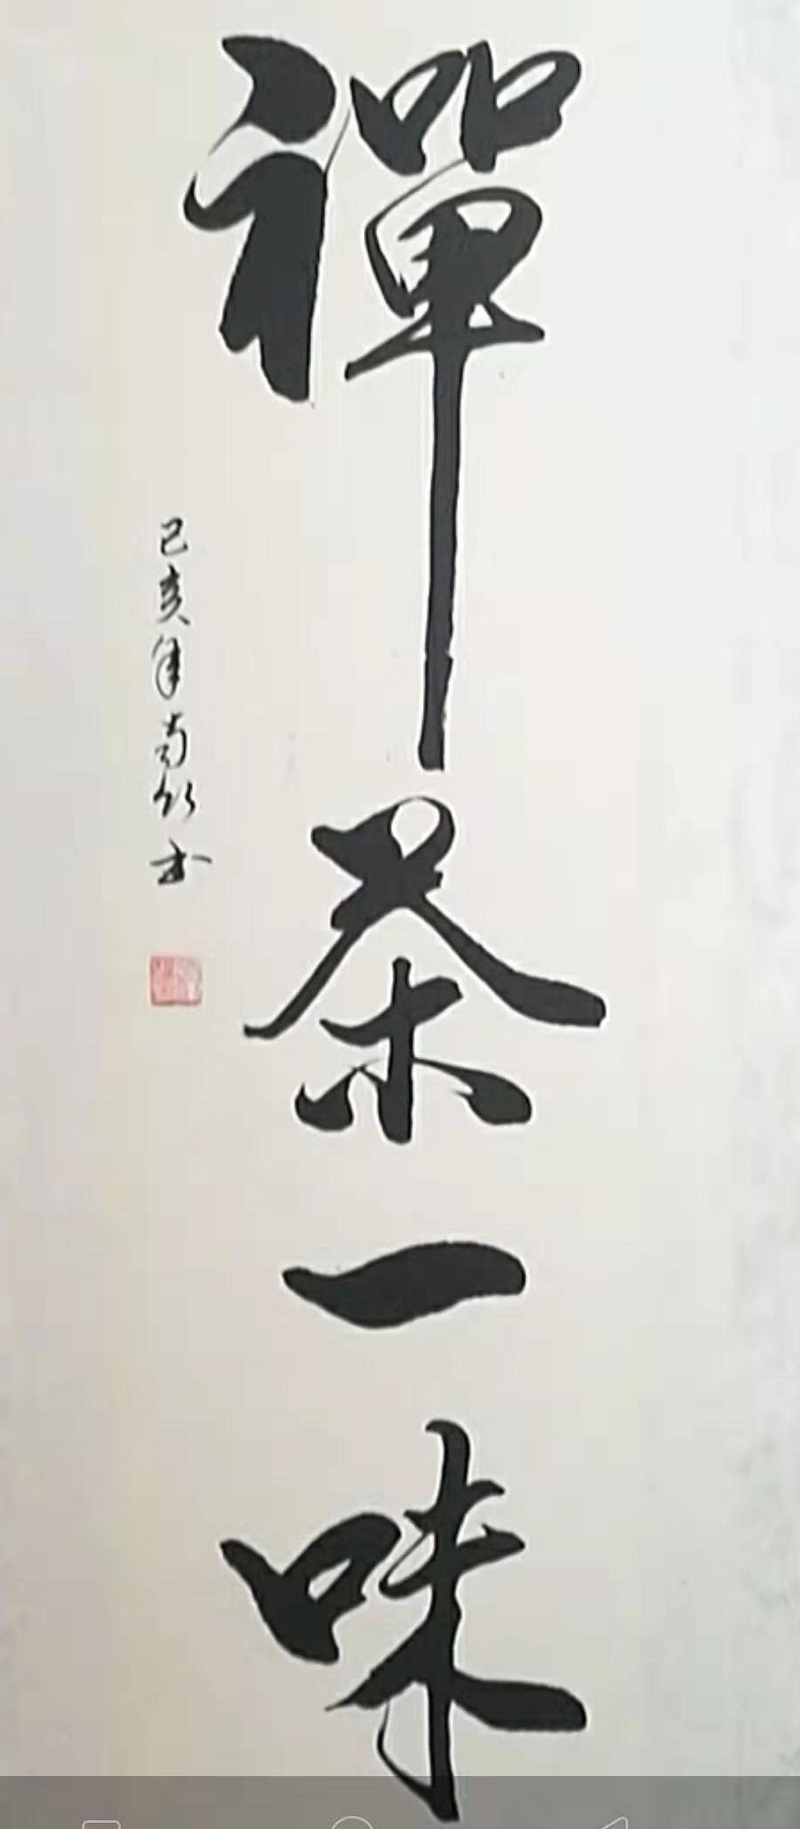 禪茶一味
己亥年南竹书